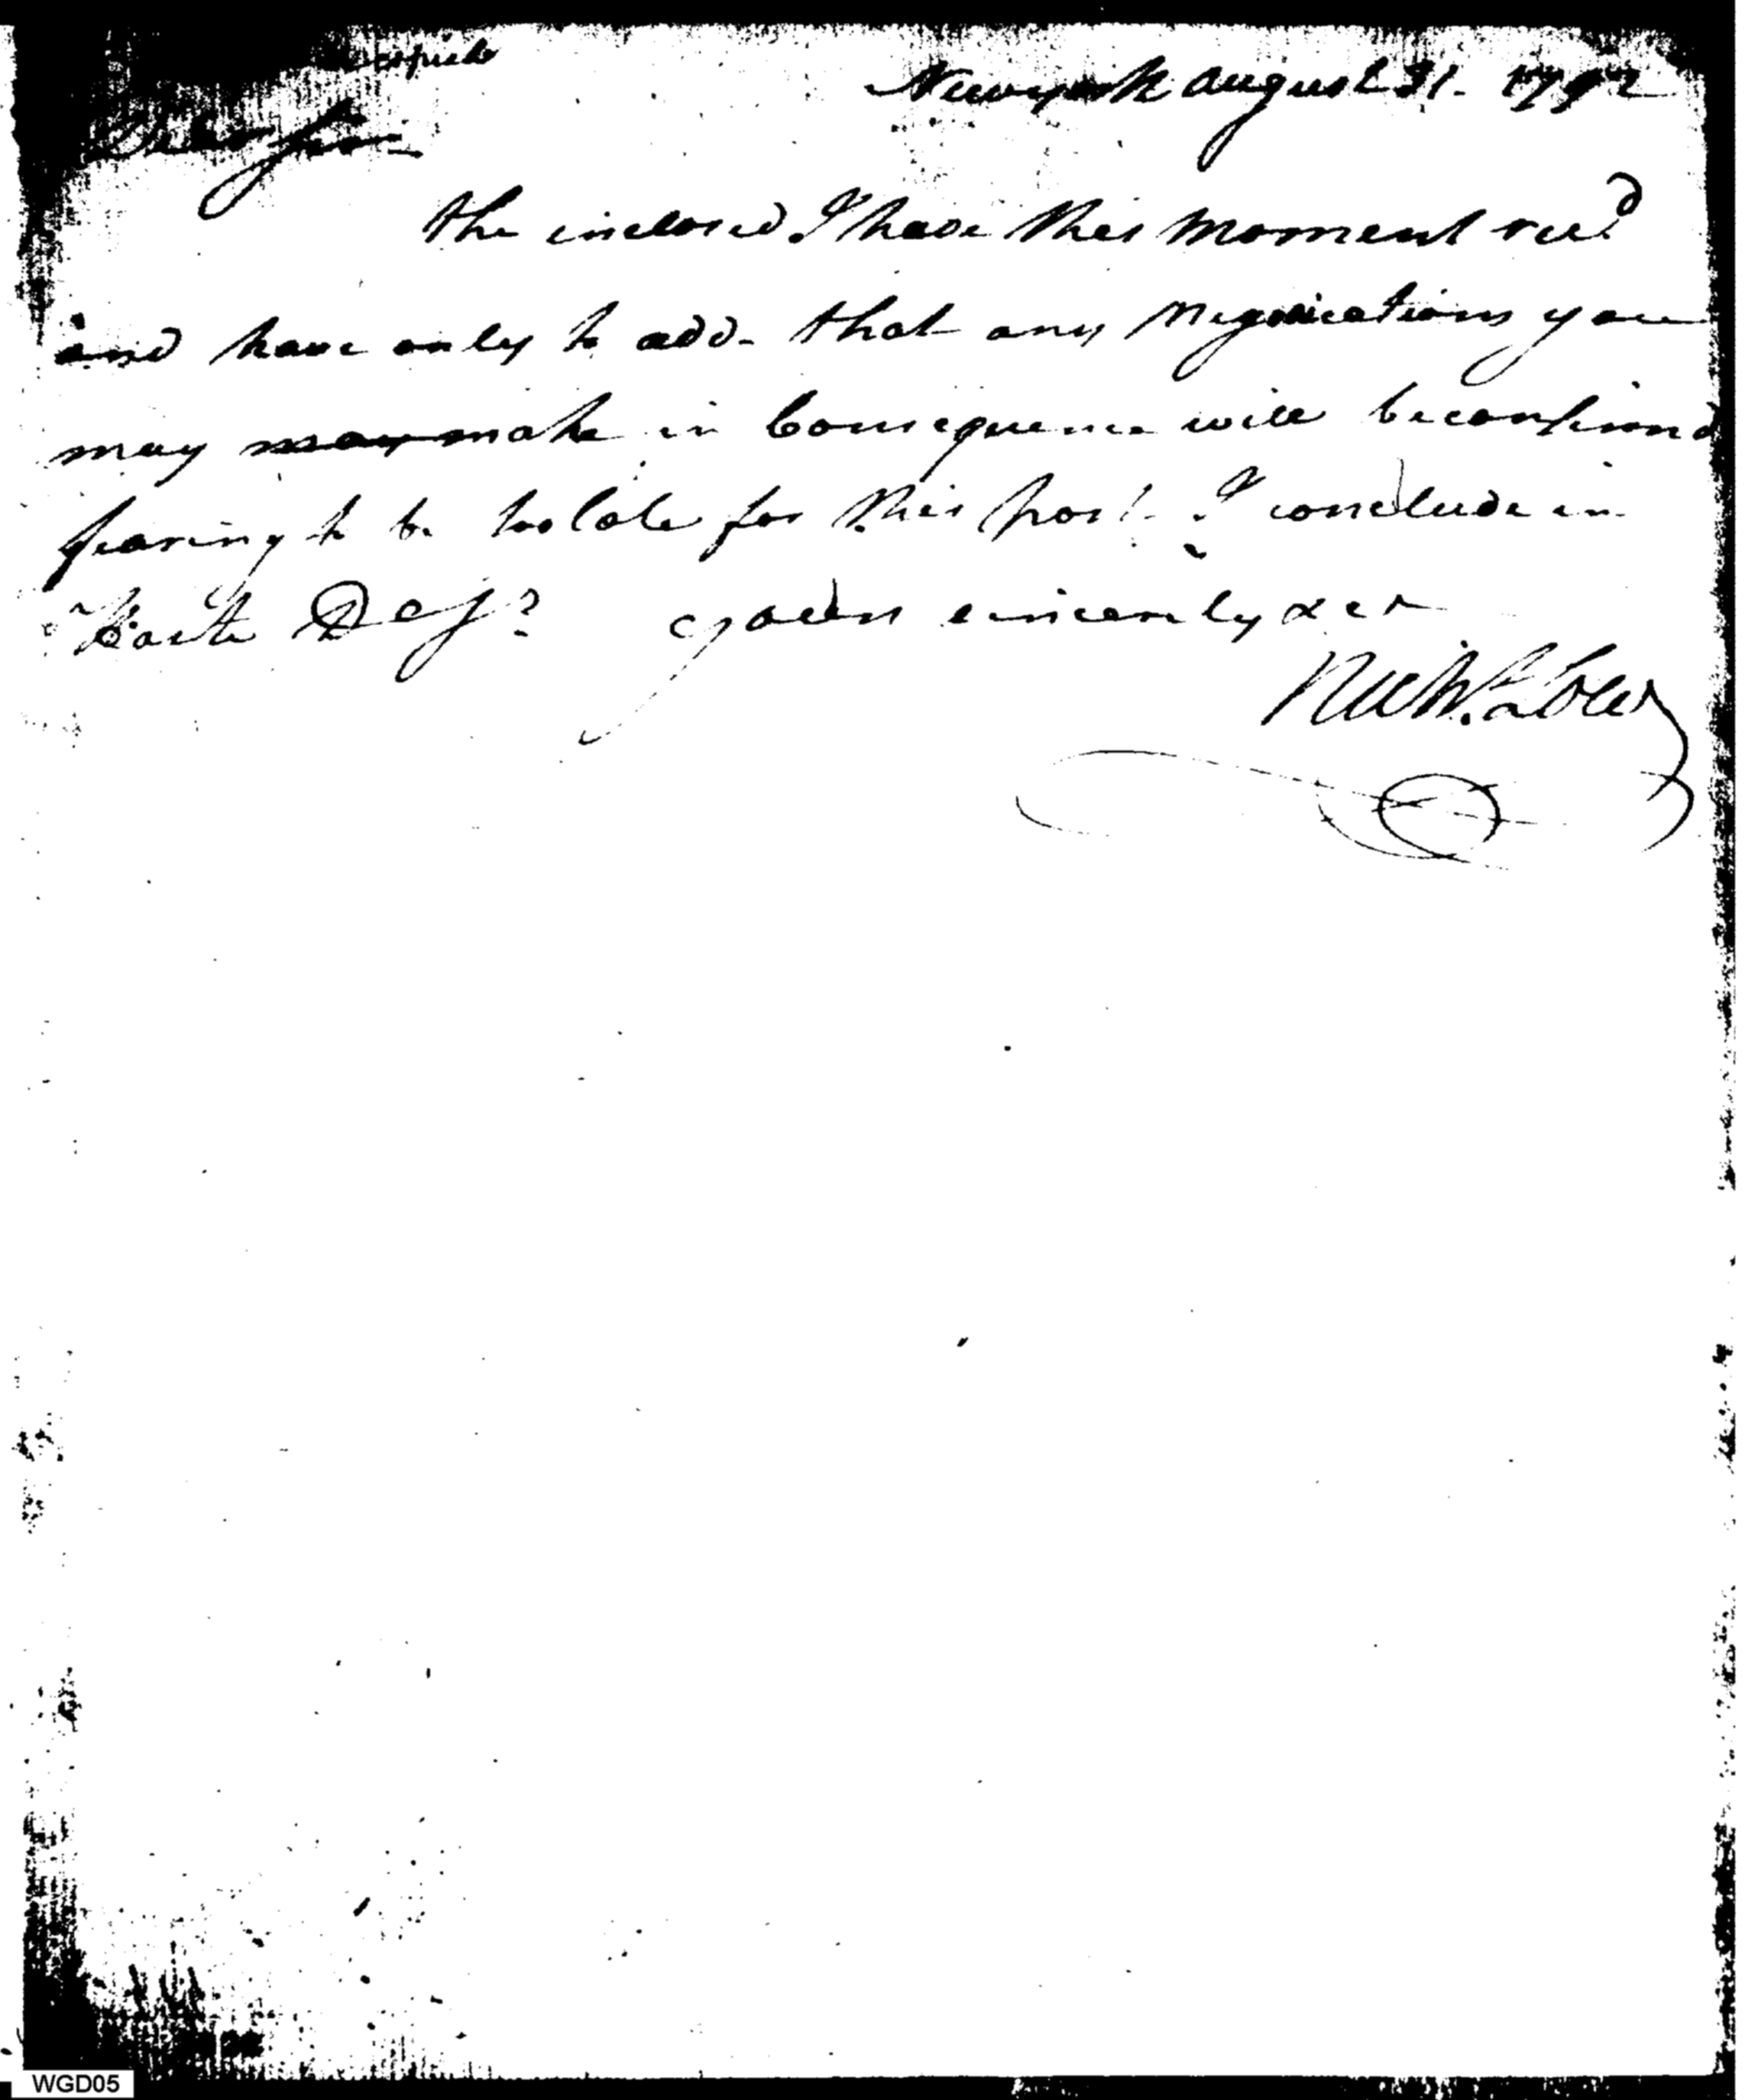 Newyork august 31. 1792
Dear Sir
the inclosed I have this moment recd
and have only to add. that any Negotiations you
may may make in Consequence will be confirmd
fearing to be too late for this post. I conclude in
haste Dr Sr yours sincerely &c
Nichs. Low
WGD05